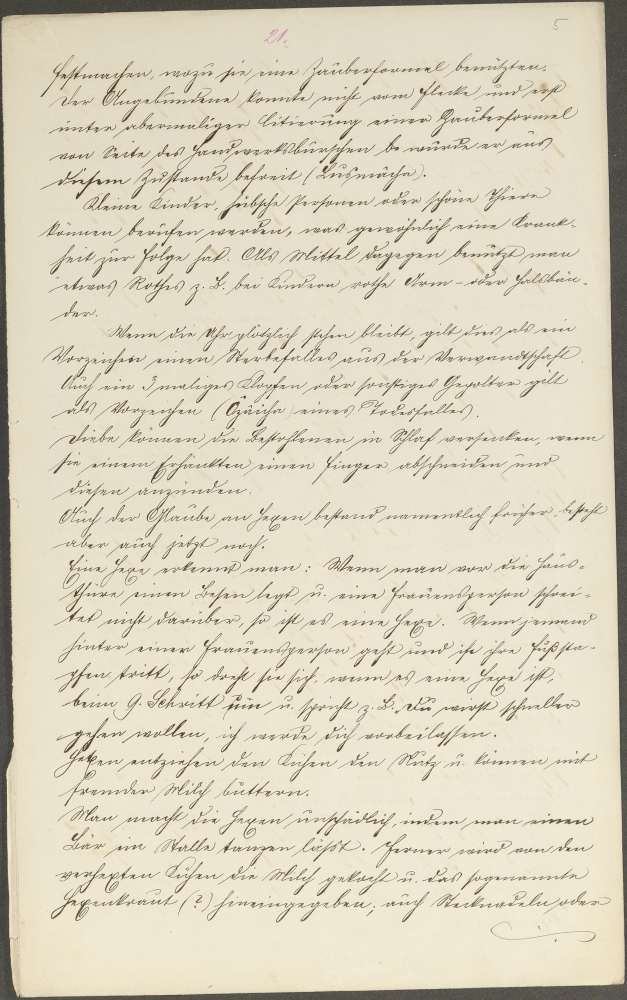 21.
5
festmachen, wozu sie eine Zauberformel benützten.
Der Angebundene konnte nicht vom Flecke und erst
unter abermaliger Citierung einer Zauberformel
von Seite des Handwerksburschen be wurde er aus
diesem Zustande befreit (Lusmächa).
Kleine Kinder, hübsche Personen oder schöne Thiere
können berufen werden, was gewöhnlich eine Krank-
heit zur Folge hat. Als Mittel dagegen benützt man
etwas Rothes z. B. bei Kindern rothe Arm- oder Halsbän-
der.
Wenn die Uhr plötzlich stehen bleibt, gilt dies als ein
Vorzeichen einen Sterbefalles aus der Verwandtschaft.
Auch ein 3 maliges Klopfen oder sonstiges Gepolter gilt
als Vorzeichen (Ozäicha) eines Todesfalles.
Diebe können die Bestohlenen in Schlaf versenken, wenn
sie einem Erhänkten einen Finger abschneiden und
diesen anzünden.
Auch der Glaube an Hexen bestand namentlich früher, besteht
aber auch jetzt noch.
Eine Hexe erkennt man: Wenn man vor die Haus-
thüre einen Besen legt u. eine Frauensperson schrei-
tet nicht darüber, so ist es eine Hexe. Wenn jemand
hinter einer Frauensperson geht und ihr ihre Fußsta-
pfen tritt, so dreht sie sich, wenn es eine Hexe ist,
beim 9. Schritt um u. spricht z. B. Du wirst schneller
gehen wollen, ich werde dich vorbeilassen.
Hexen entziehen den Kühen den Nutz u. können mit
fremder Milch buttern.
Man macht die Hexen unschädlich, indem man einen
Bär im Stalle tanzen läßt. Ferner wird von den
verhexten Kühen die Milch gekocht u. das sogenannte
Hexenkraut (?) hineingegeben; auch Stecknadeln oder